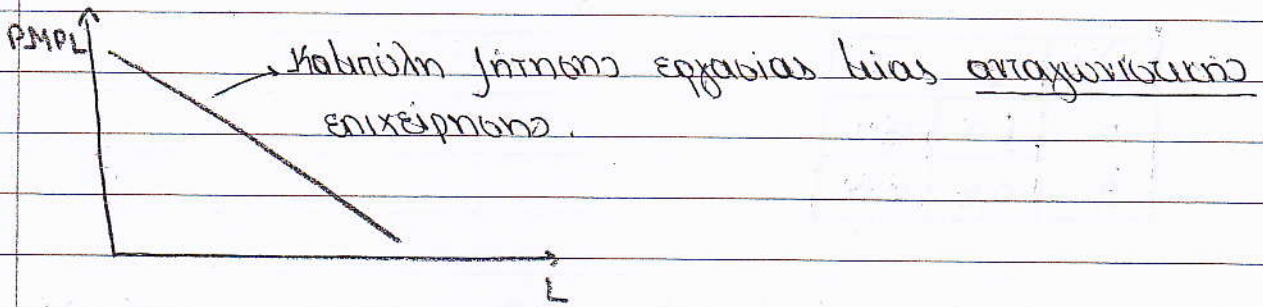 PMPL
Καμπύλη ζήτησης εργασίας μίας ανταγωνιστικής
επιχείρησης.
L